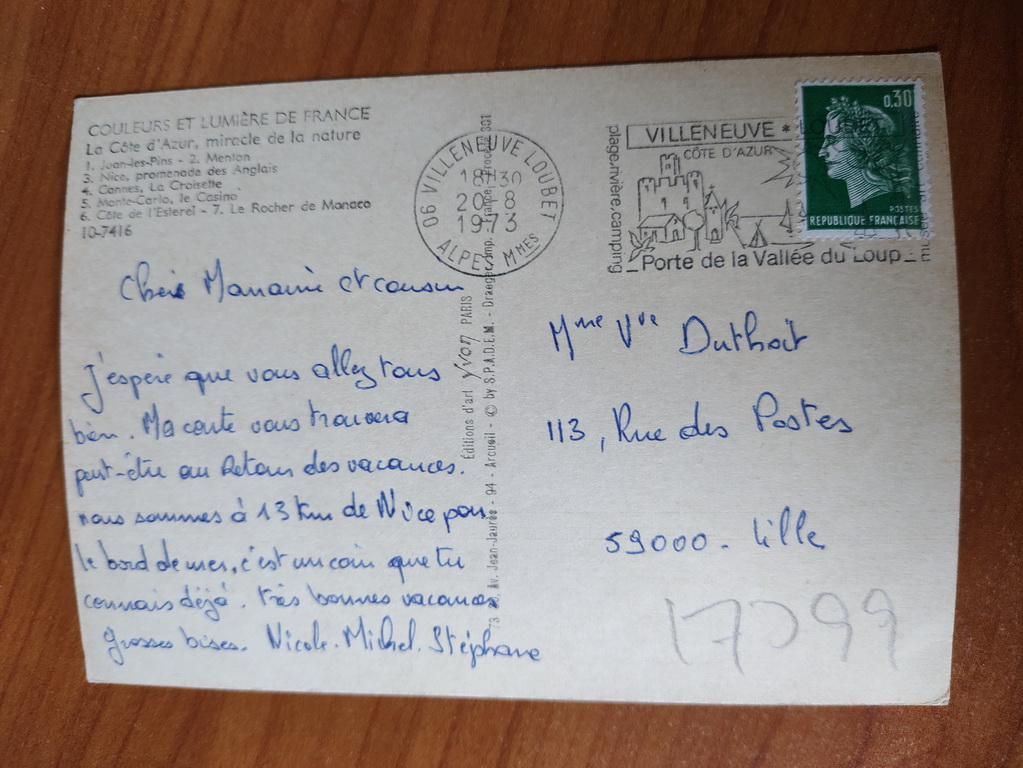 COULEURS ET LUMIÈRE DE FRANCE
La Côte d'Azur, miracle de la nature
1. Juan-les-Pins - 2. Menton
3. Nice, promenade des Anglais
4. Cannes, La Croisette
5. Monte-Carlo, le Casino
6. Côte de l'Esterel - 7. Le Rocher de Monaco
10-7416
06 VILLENEUVE LOUBET
18H30
20-8
1973
ALPES MMES
VILLENEUVE *
CÔTE D'AZUR
plage.rivière.camping
Porte de la Vallée du Loup
0,30
POSTES
REPUBLIQUE FRANÇAISE
Chère Marraine et cousin
J'espère que vous allez tous
bien. Ma carte vous trouvera
peut-être au Retour des vacances.
nous sommes à 13 km de Nice par
le bord de mer, c'est un coin que tu
connais déjà. très bonnes vacances
grosses bises. Nicole. Michel. Stéphane
Éditions d'art yvon PARIS
Av. Jean-Jaurès - 94 - Arcueil - © by S.P.A.D.E.M. - Draeger imp.
Mme Vve Duthoit
113, Rue des Postes
59000 - Lille